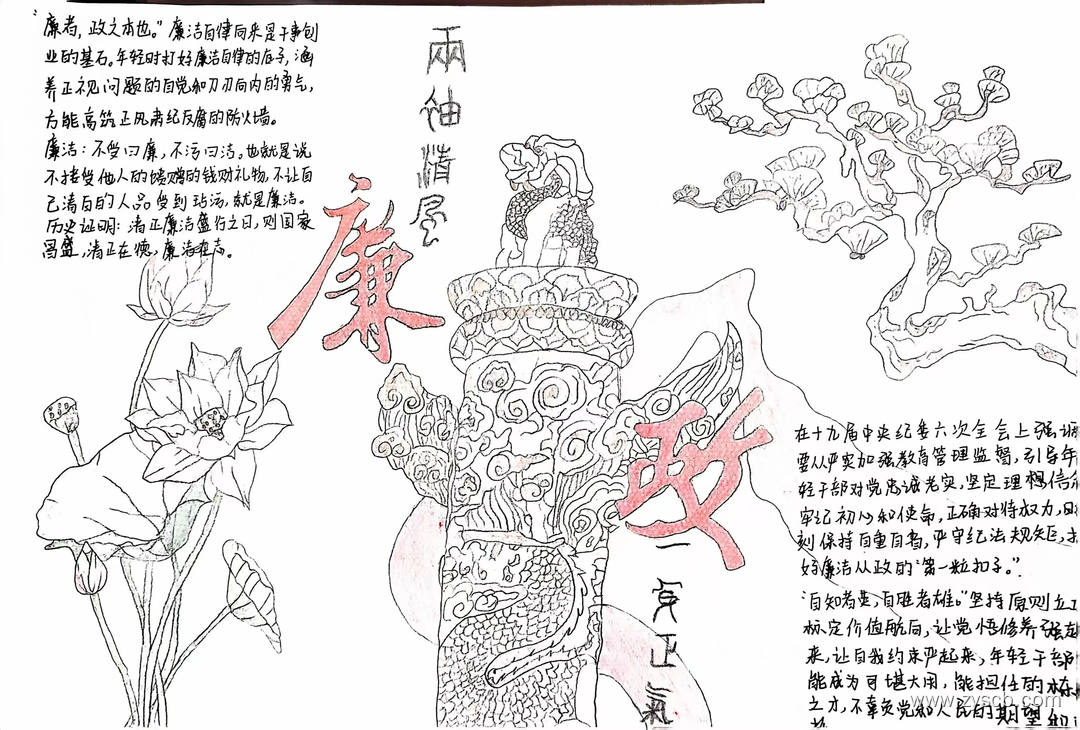 廉者，政之本也。”廉洁自律向来是干事创
业的基石。年轻时打好廉洁自律的底子，涵
养正视问题的自觉和刀刃向内的勇气，
方能高筑正风肃纪反腐的防火墙。
廉洁：不受曰廉，不污曰洁。也就是说
不接受他人的馈赠的钱财礼物，不让自
己清白的人品受到玷污，就是廉洁。
历史证明：清正廉洁盛行之日，则国家
昌盛，清正在德，廉洁在志。
兩袖清風
廉
政
一身正氣
在十九届中央纪委六次全会上强调
要从严实加强教育管理监督，引导年
轻干部对党忠诚老实，坚定理想信
牢记初心和使命，正确对待权力，时
刻保持自重自省，严守纪法规矩，扣
好廉洁从政的“第一粒扣子。”
“自知者英，自胜者雄。”坚持原则立
标定价值航向，让党悟修养强起
来，让自我约束严起来，年轻干部
能成为可堪大用，能担任的栋
之才，不辜负党和人民的期望
www.zyscb.com